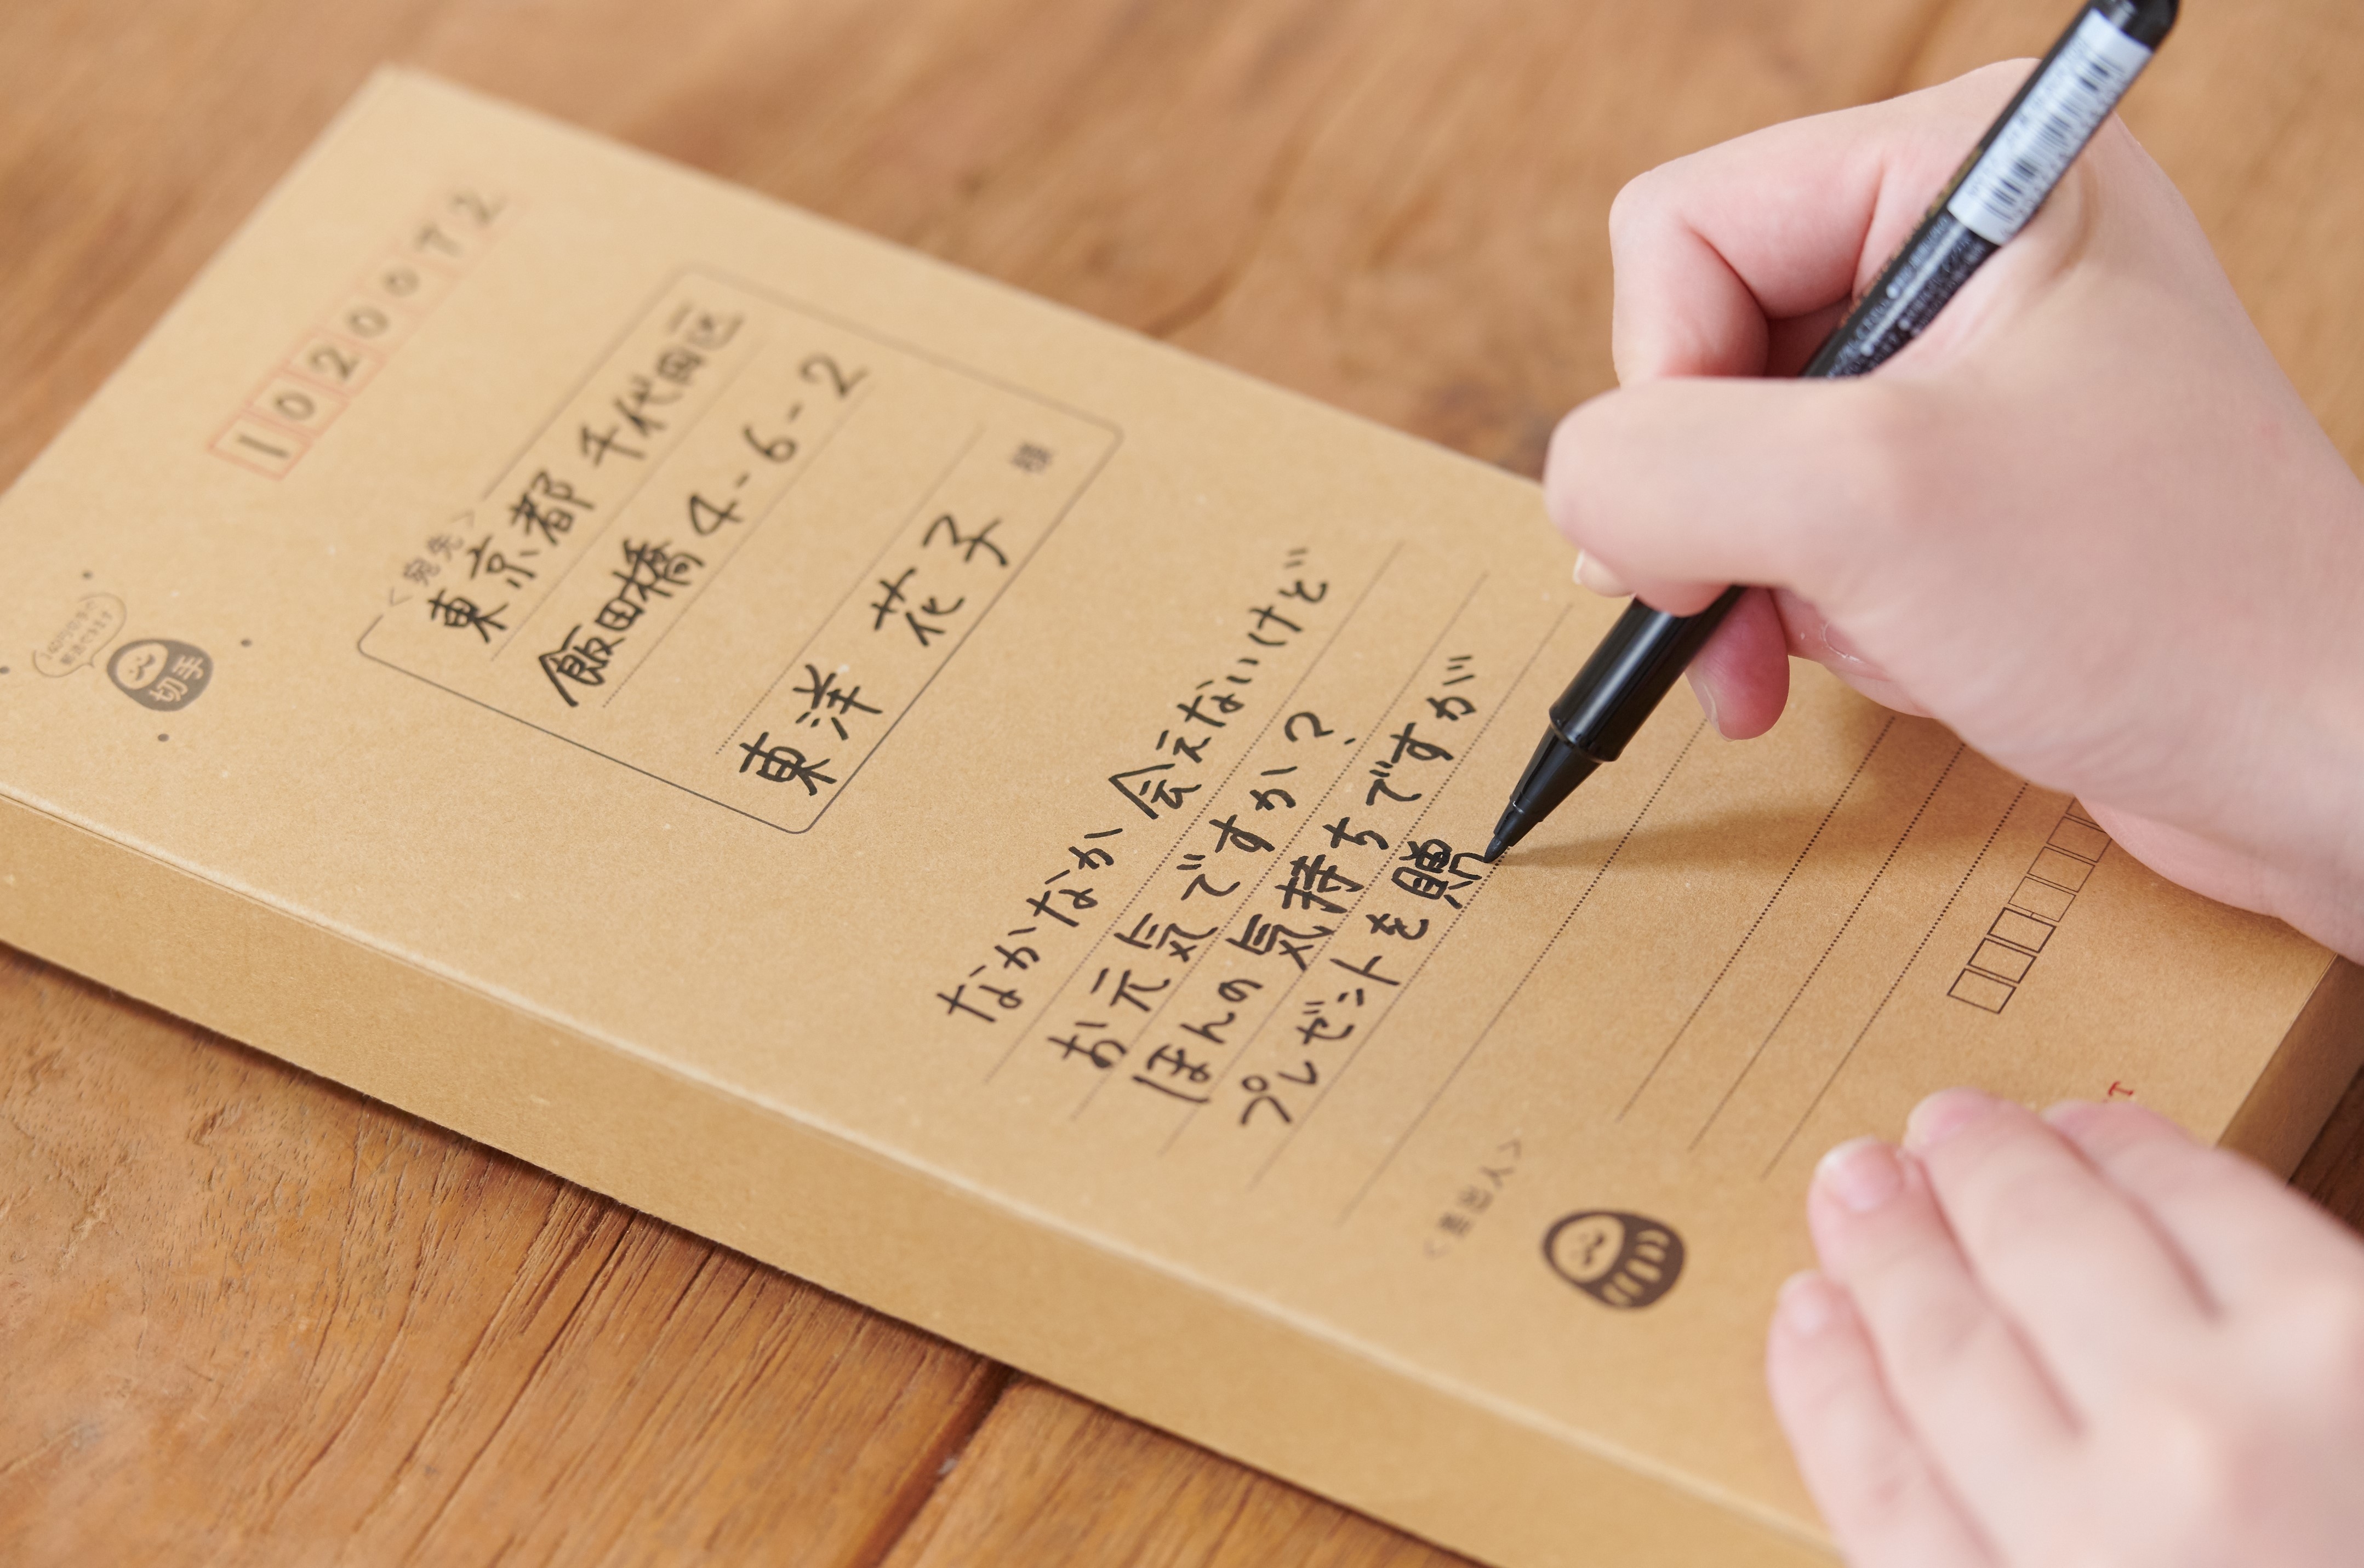 1020072
<宛先>
東京都千代田区
飯田橋4-6-2
東洋 花子 様
140円切手で
郵送できます
切手
なかなか会えないけど
お元気ですか?
ほんの気持ちですが
プレゼントを贈
<差出人>